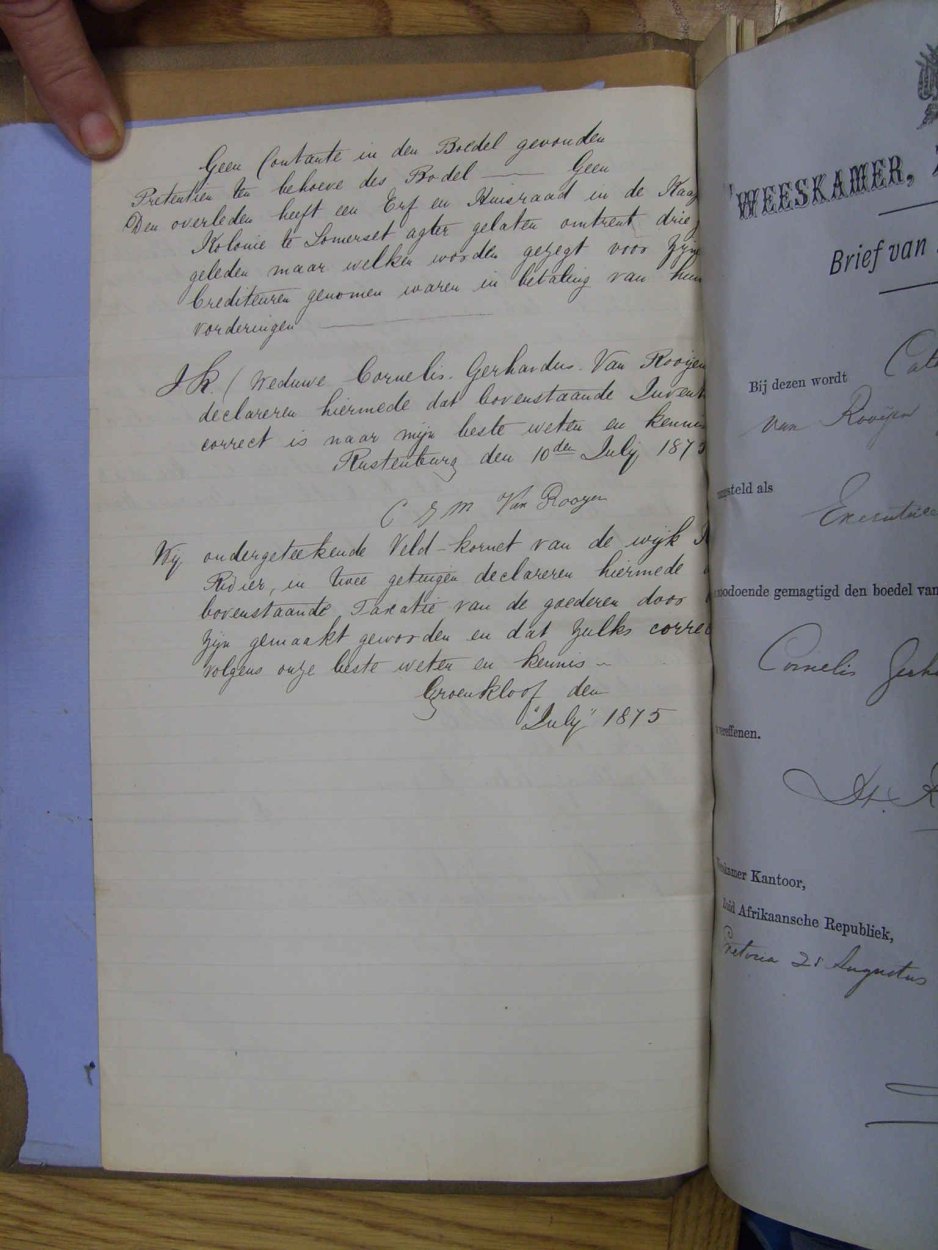 Geen Contante in den Boedel gevonden
Pretentien ten behoeve des Bodel — Geen
Den overleden heeft een Erf en Huisraad in de Kaap
Kolonie te Somerset agter gelaten omtrent drie
geleden maar welken worden gezegt voor zyn
Crediteuren genomen waren in betaling van hun
vorderingen —
Ik (Weduwe Cornelis. Gerhardus. Van Rooijen
declareren hiermede dat bovenstaande Invent
correct is naar mijn beste weten en kennis
Rustenburg den 10den July 1875
C G M Van Rooyen
Wij ondergeteekende Veld-kornet van de wijk
Rivier, in twee getuigen declareren hiermede
bovenstaande Taxatie van de goederen door
zyn gemaakt geworden en dat zulks correc
volgens onze beste weten en kennis —
Groenkloof den
"July" 1875
WEESKAMER,
Brief van
Bij dezen wordt
van Rooijen
angesteld als
Executrice
modoende gemagtigd den boedel van
Cornelis Gerha
vereffenen.
Weeskamer Kantoor,
Zuid Afrikaansche Republiek,
Pretoria 21 Augustus